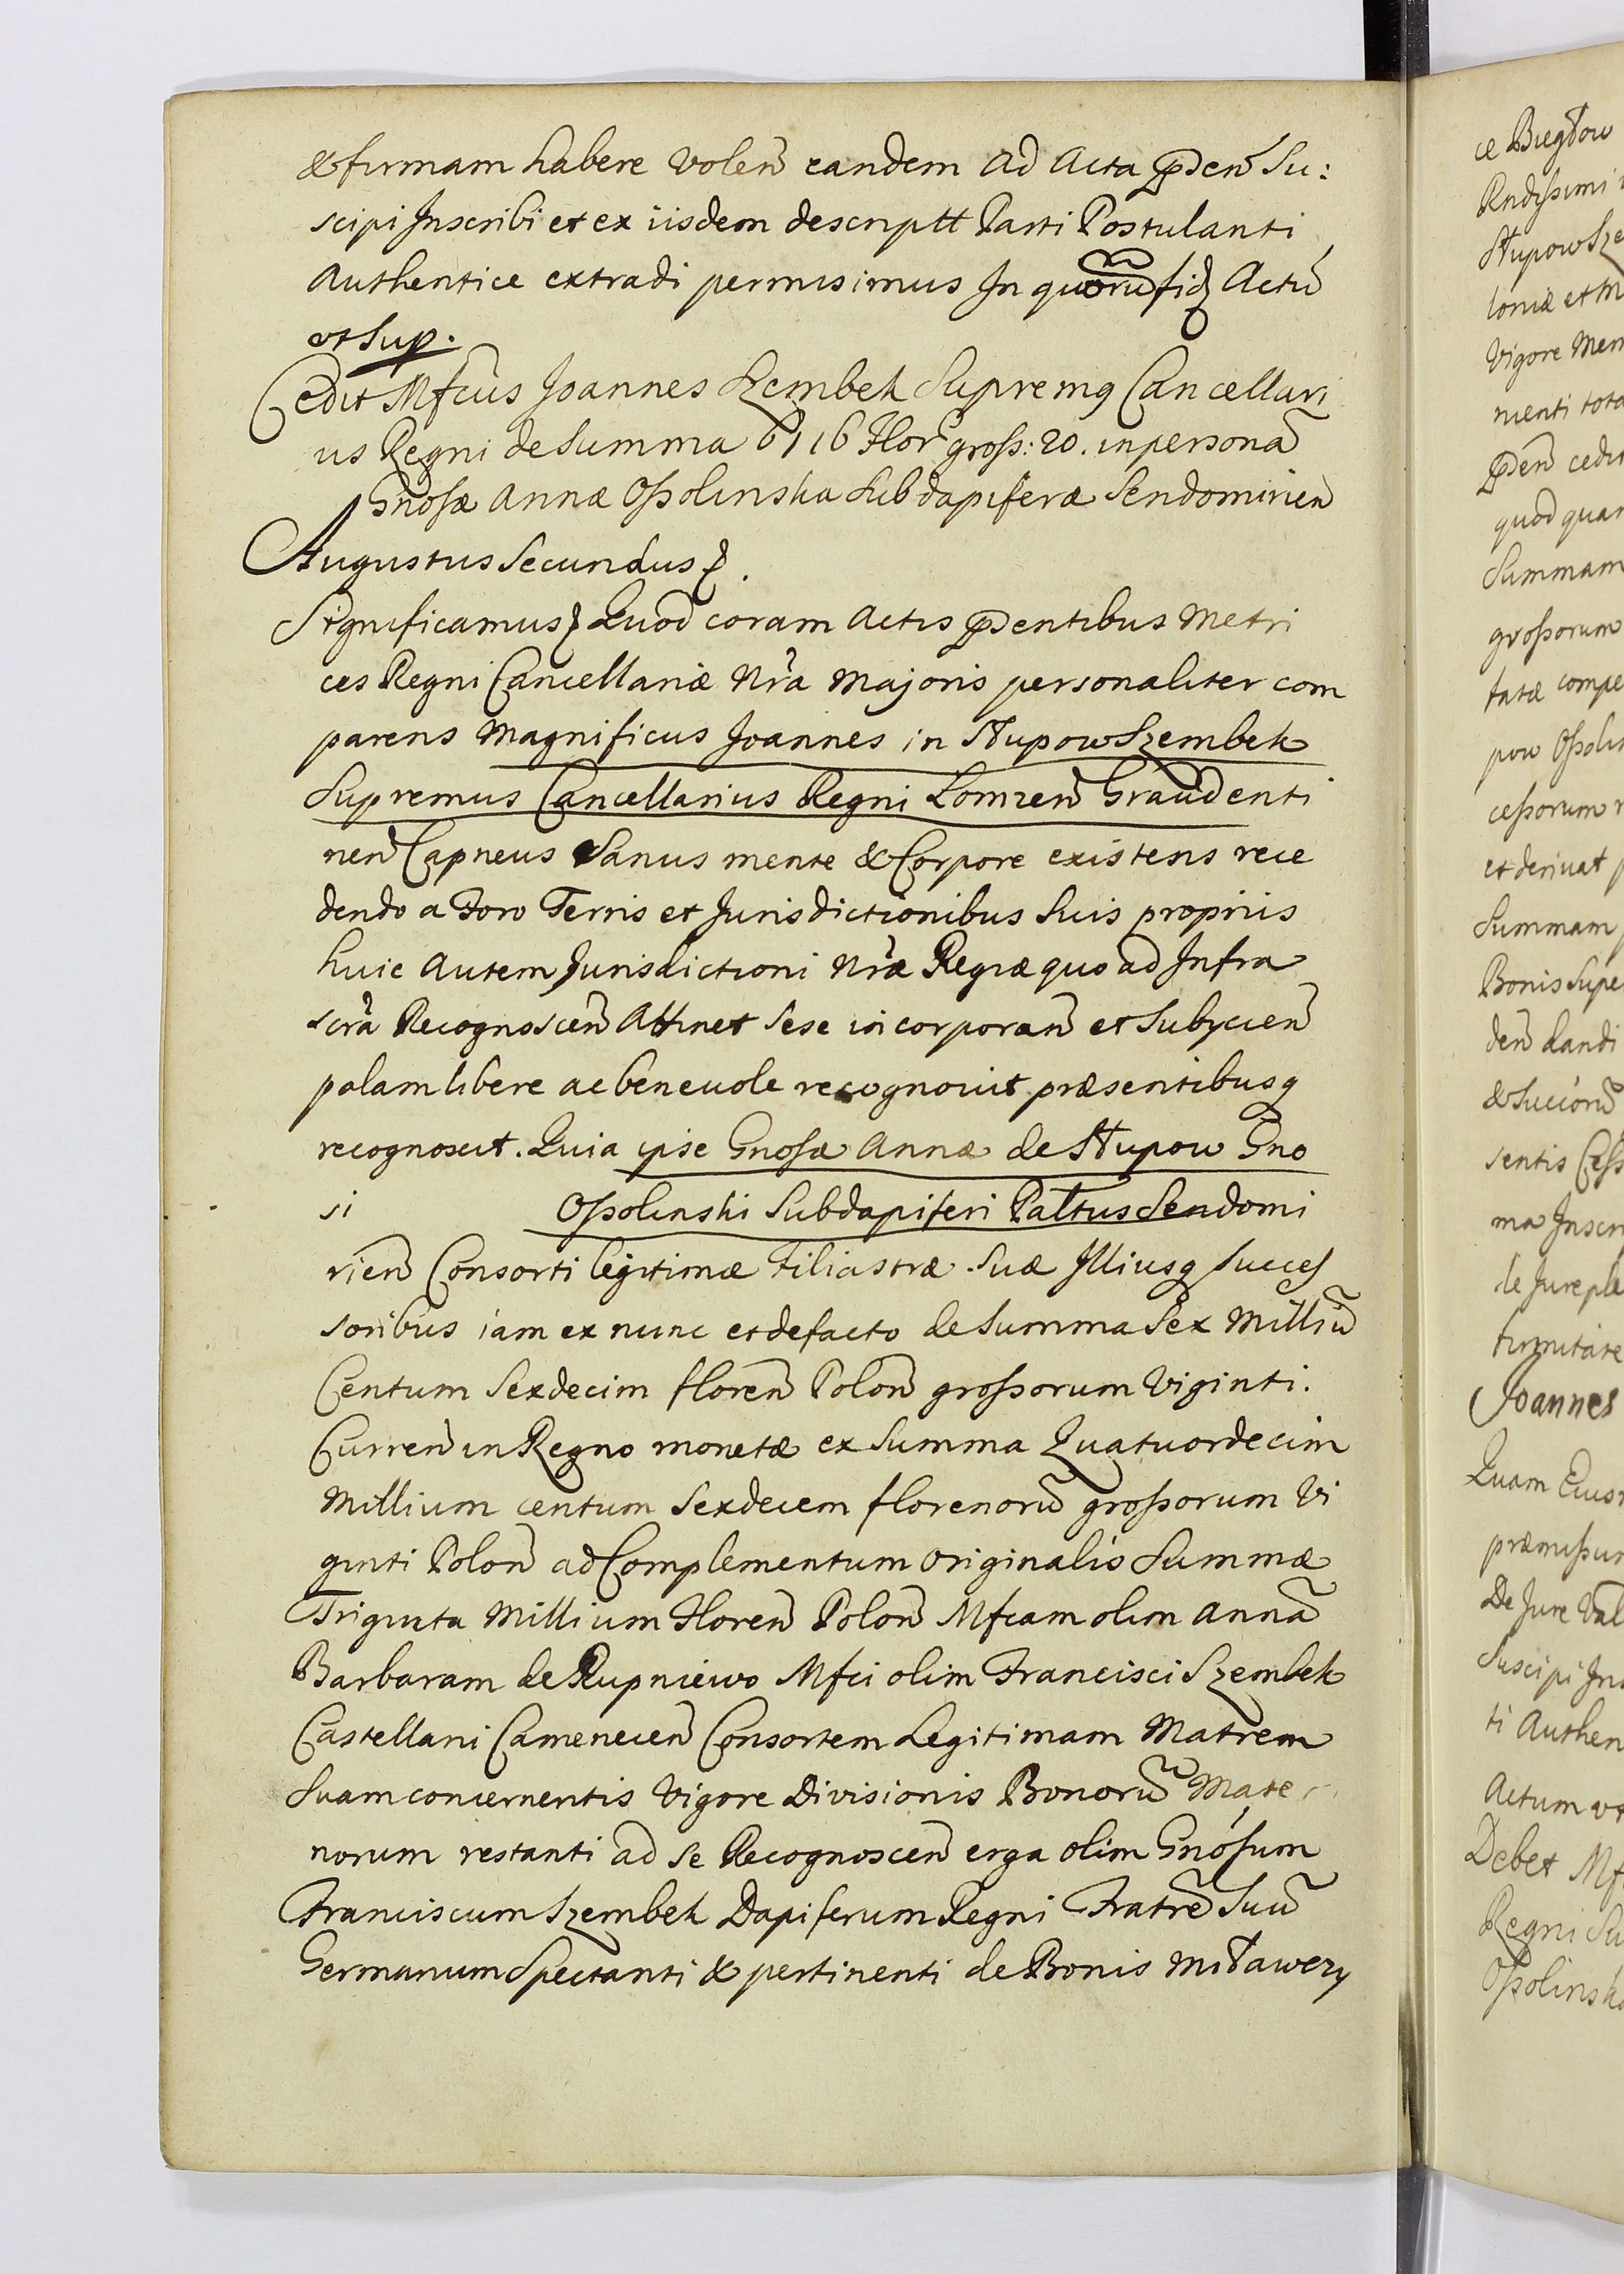 & firmam habere volen̄ eandem ad Acta p̄den̄ Su:
scipi Inscribi et ex iisdem descriptt Parti Postulanti
Authentice extradi permisimus In quorū fid Actū
ut Sup.
Cedit Mfcus Joannes Szembek Supremq Cancellari
us Regni de Summa 6116 Flor gross: 20. in personā
Gnosæ Annæ Ossolinska Subdapiferæ Sendomirien̄
Augustus Secundus.
Significamus Quod coram Actis p̄dentibus Metri
ces Regni Cancellariæ Nr̄a Majoris personaliter com
parens Magnificus Joannes in Słupow Szembek
Supremus Cancellarius Regni Lomzen̄ Graudenti
nen̄ Capneus Sanus mente & Corpore existens rece
dendo a Foro Terris et Jurisdictionibus Suis propriis
huic Autem Jurisdictioni Nr̄æ Regiæ quo ad Infra
scr̄a Recognoscen̄ Attinet Sese incorporan̄ et Subycien̄
palam libere ac benevole recognovit præsentibusq
recognoscit. Quia ipse Gnosæ Annæ de Słupow Gno
si Ossolinski Subdapiferi Pałtus Sendomi
rien̄ Consorti legitimæ Filiastræ Suæ Illiusq Succes
soribus iam ex nunc et de facto de Summa Sex Milliū
Centum Sexdecim floren̄ Polon̄ grossorum Viginti.
Curren̄ in Regno monetæ ex Summa Quatuordecim
Millium centum Sexdecem florenorū grossorum Vi
ginti Polon̄ ad Complementum Originalis Summæ
Triginta Millium Floren̄ Polon̄ Mfcam olim Annā
Barbaram de Rupniewo Mfci olim Francisci Szembek
Castellani Camenecen̄ Consortem Legitimam Matrem
Suam concernentis Vigore Divisionis Bonorū Mate
norum restanti ad se Recognoscen̄ erga olim Gnosum
Franciscum Szembek Dapiferum Regni Fratrē Suū
Germanum Spectanti & pertinenti de Bonis Młławczy
Rndissimi
Słupow Sze
loniæ et M
Vigore Mem
menti tota
p̄den̄ cedit
quod quar
Summam
grossorum
tatæ compe
pow Ossolin
cessorum
et derivat
Summam
Bonis Supe
den̄ dandi
& Succorū
sentis Cess
ma Inscri
de Jure ple
firmitate
Joannes
Quam Eius
præmissu
De Jure Val
Suscipi Ins
ti Authen
Actum ut
Debet Mf
Regni Su
Ossolinsk